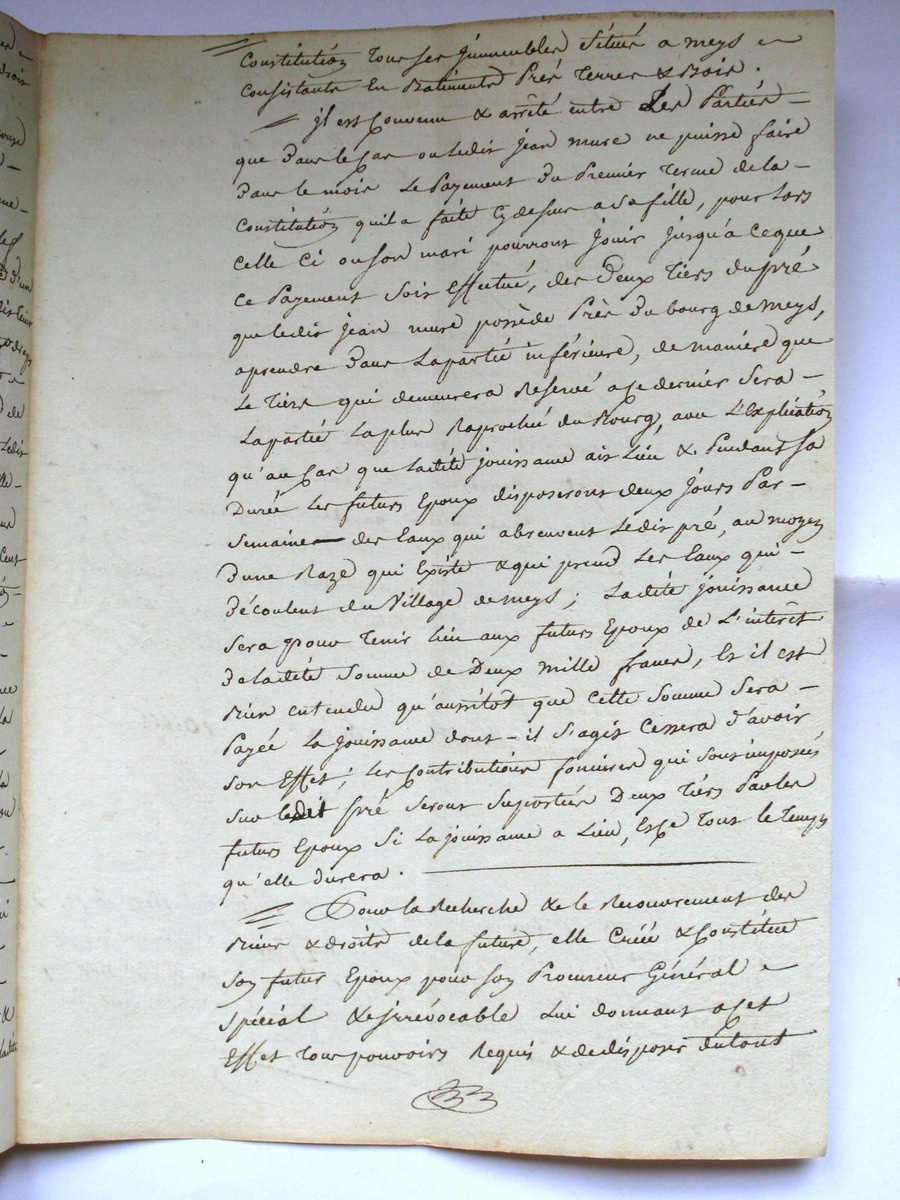 Constitution tous ses jmmeubles Situés a meys &
Consistants En Batiments Prés terres & Bois.
jl est Convenu & arrêté entre Les Parties –
que dans le Cas ou ledit jean mure ne puisse faire
dans le mois Le Payement du Premier terme de la –
Constitution qu'il a faite Cydessus a sa fille, pour lors
celle Ci ou son mari pourront jouir jusqu'à ceque
ce Payement soit Effectué, des deux tiers du pré
que ledit jean mure possède Près du bourg de meys,
aprendre dans La partie inférieure, de manière que
Le tiers qui demeurera Reservé a ce dernier Sera –
La partie La plus Raproché du Bourg, avec L'Explication
qu'au Cas que Ladite jouissance ait Lieu & Pendant sa
Durée Les futurs Epoux disposeront deux jours Par –
Semaine des Eaux qui abreuvent Ledit pré, au moyen
d'une Raze qui Existe & qui prend Les Eaux qui –
découlent du Village de meys ; Ladite jouissance
sera pour tenir lieu aux futurs Epoux de L'intérêt
de ladite Somme de Deux mille francs, Et il est
Bien entendu qu'aussitot que cette Somme Sera –
Payée La jouissance dont – il s'agit Cessera d'avoir
son Effet ; Les Contributions foncières qui sont imposés
sur ledit pré seront Suportées Deux tiers Par les
futurs Epoux Si La jouissance a Lieu, Et Ce tout le temps
qu'elle durera.
Pour la Recherche & le Recouvrement des
Biens & droits de la future, elle Créé & Constitue
son futur Epoux pour son Procureur Général &
spécial & jrrévocable Lui donnant a Cet
Effet tous pouvoirs Requis & de disposer du tout